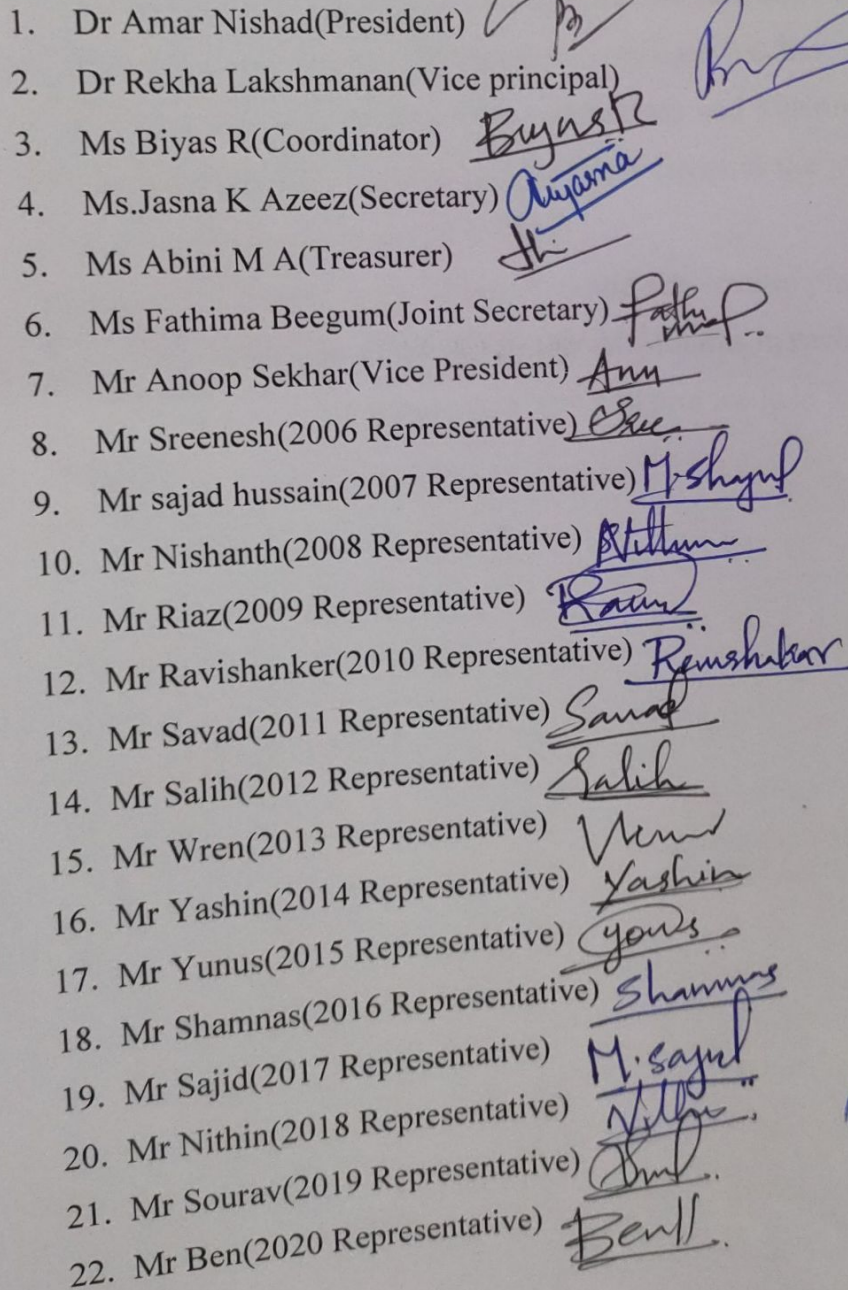 1. Dr Amar Nishad(President)
2. Dr Rekha Lakshmanan(Vice principal)
3. Ms Biyas R(Coordinator) Biyas R
4. Ms.Jasna K Azeez(Secretary)
5. Ms Abini M A(Treasurer)
6. Ms Fathima Beegum(Joint Secretary)
7. Mr Anoop Sekhar(Vice President)
8. Mr Sreenesh(2006 Representative)
9. Mr sajad hussain(2007 Representative)
10. Mr Nishanth(2008 Representative)
11. Mr Riaz(2009 Representative)
12. Mr Ravishanker(2010 Representative)
13. Mr Savad(2011 Representative) Savad
14. Mr Salih(2012 Representative) Salih
15. Mr Wren(2013 Representative)
16. Mr Yashin(2014 Representative) Yashin
17. Mr Yunus(2015 Representative)
18. Mr Shamnas(2016 Representative) Shamnas
19. Mr Sajid(2017 Representative)
20. Mr Nithin(2018 Representative)
21. Mr Sourav(2019 Representative)
22. Mr Ben(2020 Representative)